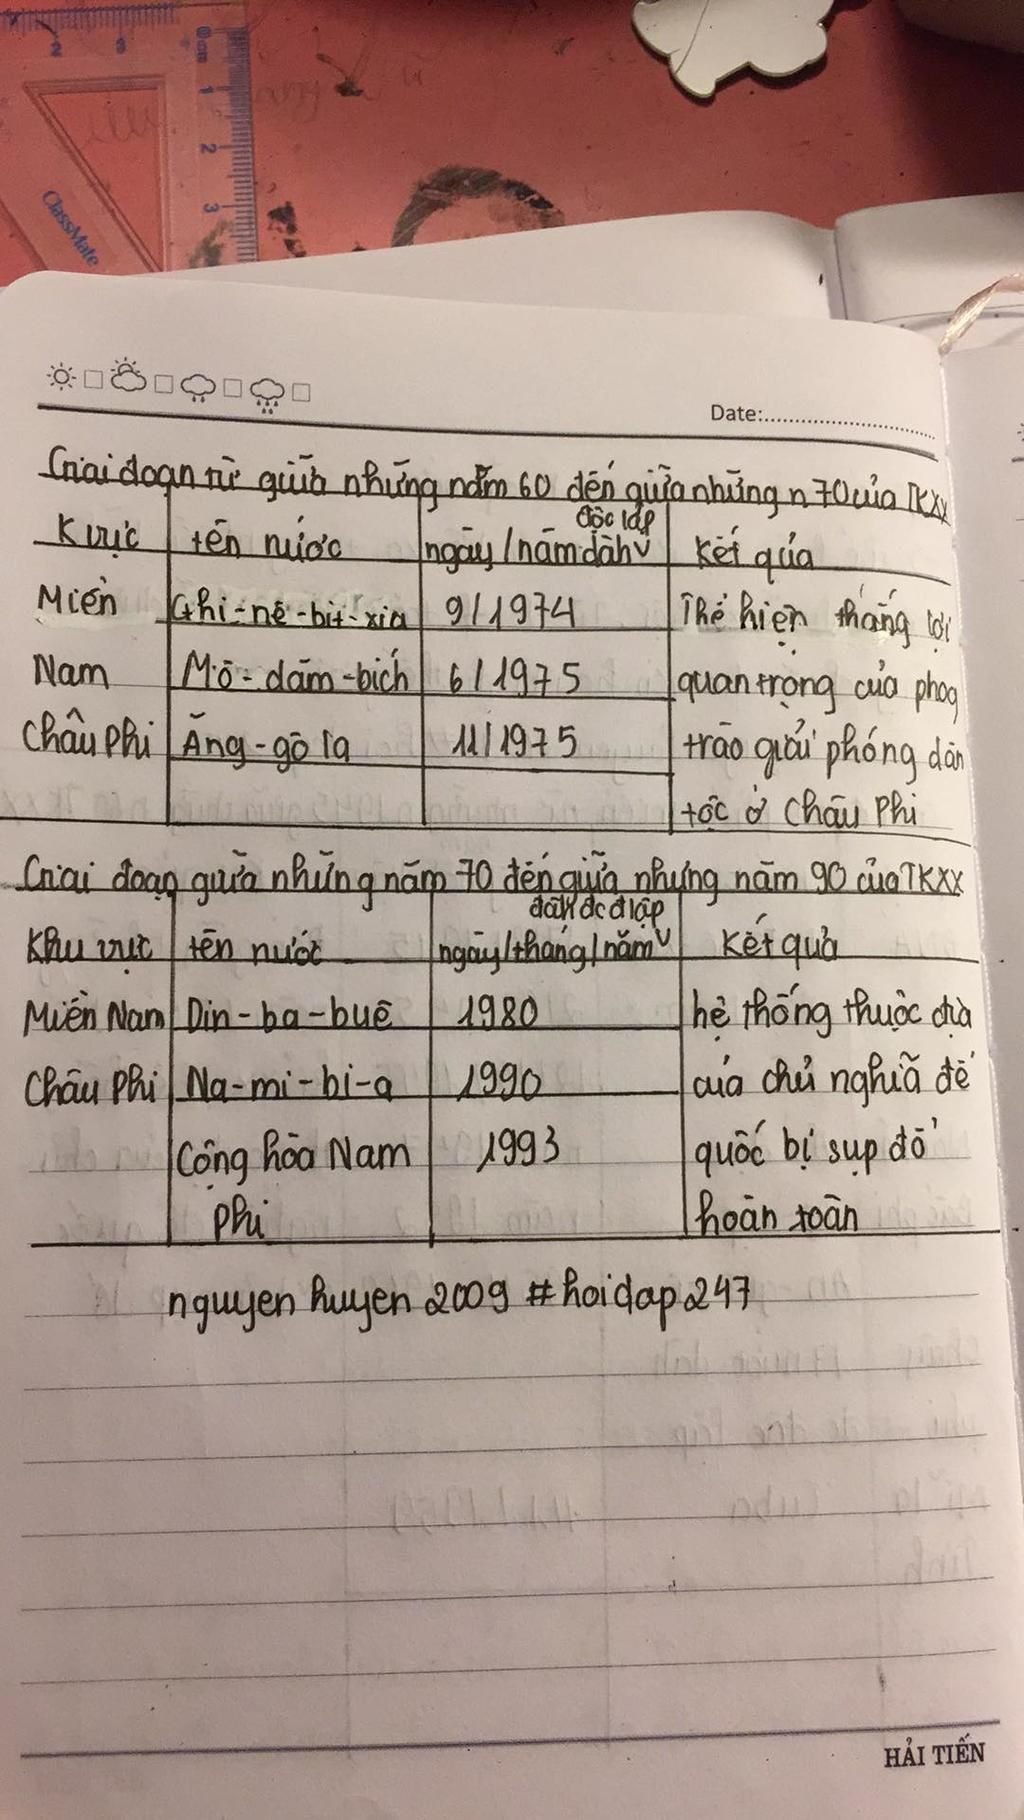 2 3 0cm 1
2
3
ClassMate
Date:
Giai đoạn từ giữa những năm 60 đến giữa những n 70 của TKXX
K vực tên nước ngày/năm dành độc lập Kết quả
Miền Ghi-nê-bít-xia 9/1974 Thể hiện thắng lợi
Nam Mô-dăm-bích 6/1975 quan trọng của phog
Châu Phi Ăng-gô la 11/1975 trào giải phóng dân
tộc ở Châu Phi
Giai đoạn giữa những năm 70 đến giữa những năm 90 của TKXX
Khu vực tên nước ngày/tháng/năm dành đc đ lập Kết quả
Miền Nam Din-ba-buê 1980 hệ thống thuộc địa
Châu Phi Na-mi-bi-a 1990 của chủ nghĩa đế
Cộng hòa Nam 1993 quốc bị sụp đổ
Phi hoàn toàn
nguyen huyen 2009 #hoidap247
HẢI TIẾN